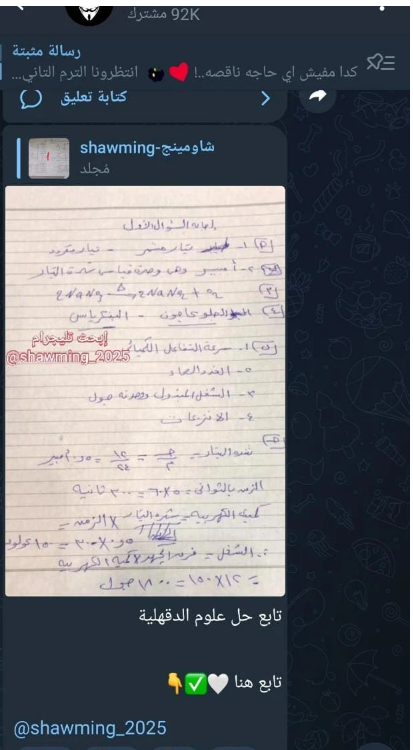 92K مشترك
رسالة مثبتة
كدا مفيش اي حاجه ناقصه..! ❤️ انتظرونا الترم التاني...
كتابة تعليق
shawming-شاومينج
مُجلد
إجابة السؤال الأول
١- تيار مستمر - تيار متردد
٢- أمبير وهى وحدة قياس شدة التيار
2NaNO₃ Δ 2NaNO₂ + O₂
الجلوكاجون - البنكرياس
إبحث تليجرام
@shawming_2025
١- سرعة التفاعل الكيميائى
٢- الغدد الصماء
٣- الشغل المبذول وحدته جول
٤- الانزيمات
شدة التيار = ج/م = ١٢/٢٤ = ٠٫٥ أمبير
الزمن بالثوانى = ٥×٦٠ = ٣٠٠ ثانية
كمية الكهربية = شدة التيار × الزمن =
٠٫٥ × ٣٠٠ = ١٥٠ كولوم
∴ الشغل = فرق الجهد × كمية الكهربية
= ١٢ × ١٥٠ = ١٨٠٠ جول
تابع حل علوم الدقهلية
تابع هنا 🤍✅👇
@shawming_2025